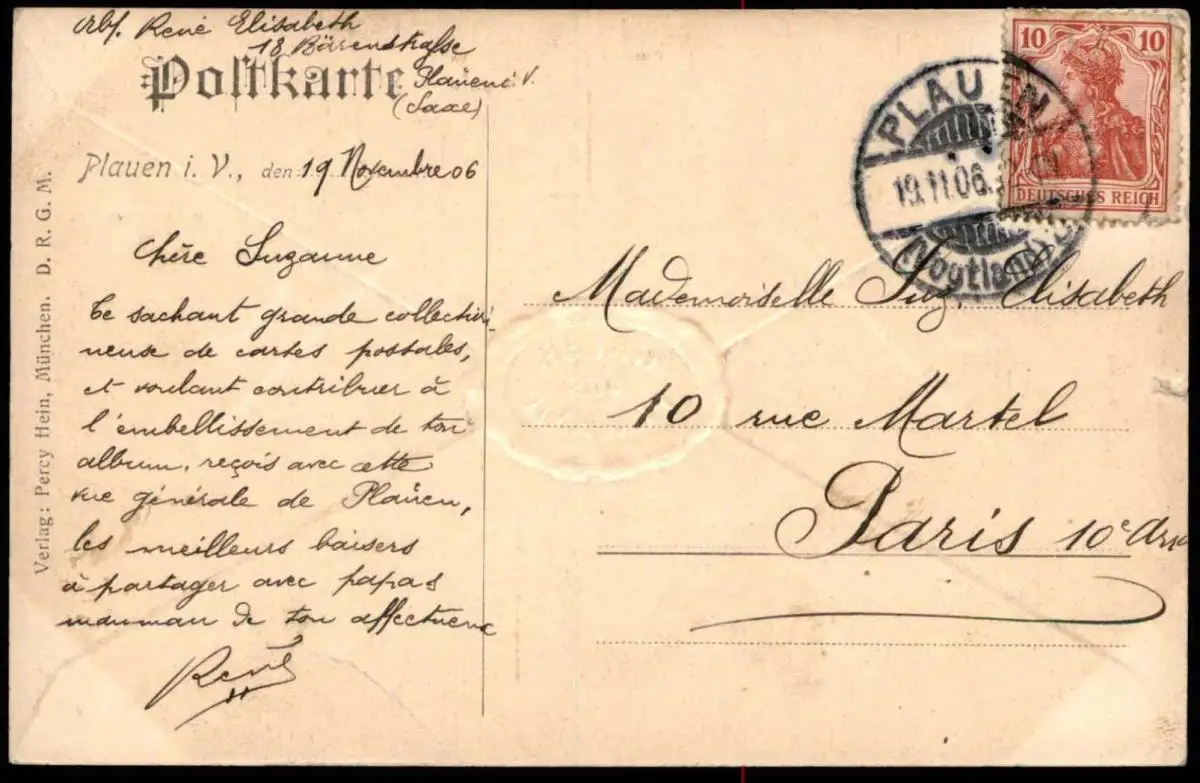 René Elisabeth
18 Bärenstrasse
Postkarte
Plauen i. V.
(Saxe)
Plauen i. V., den 19 Novembre 06
Chère Suzanne
Te sachant grande collection-
neuse de cartes postales,
et voulant contribuer à
l'embellissement de ton
album, reçois avec cette
vue générale de Plaüen,
les meilleurs baisers
à partager avec papas
maman de ton affectueux
René
Verlag: Percy Hein, München. D. R. G. M.
10 10
DEUTSCHES REICH
PLAUEN
19.11.06.
(Vogtland)
Mademoiselle Suz. Elisabeth
10 rue Martel
Paris 10e